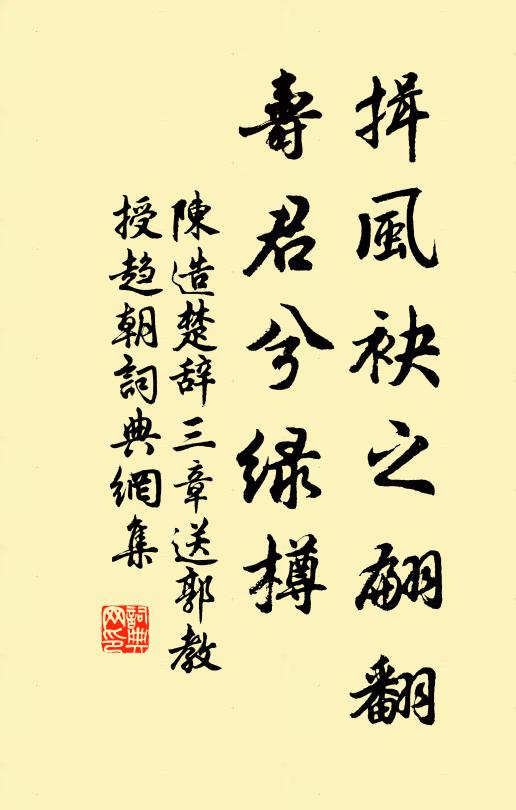 揖風袂之翩翻
壽君兮緑樽
陳造楚辞三章送郭教
授趋朝詞典網集
詞典网印